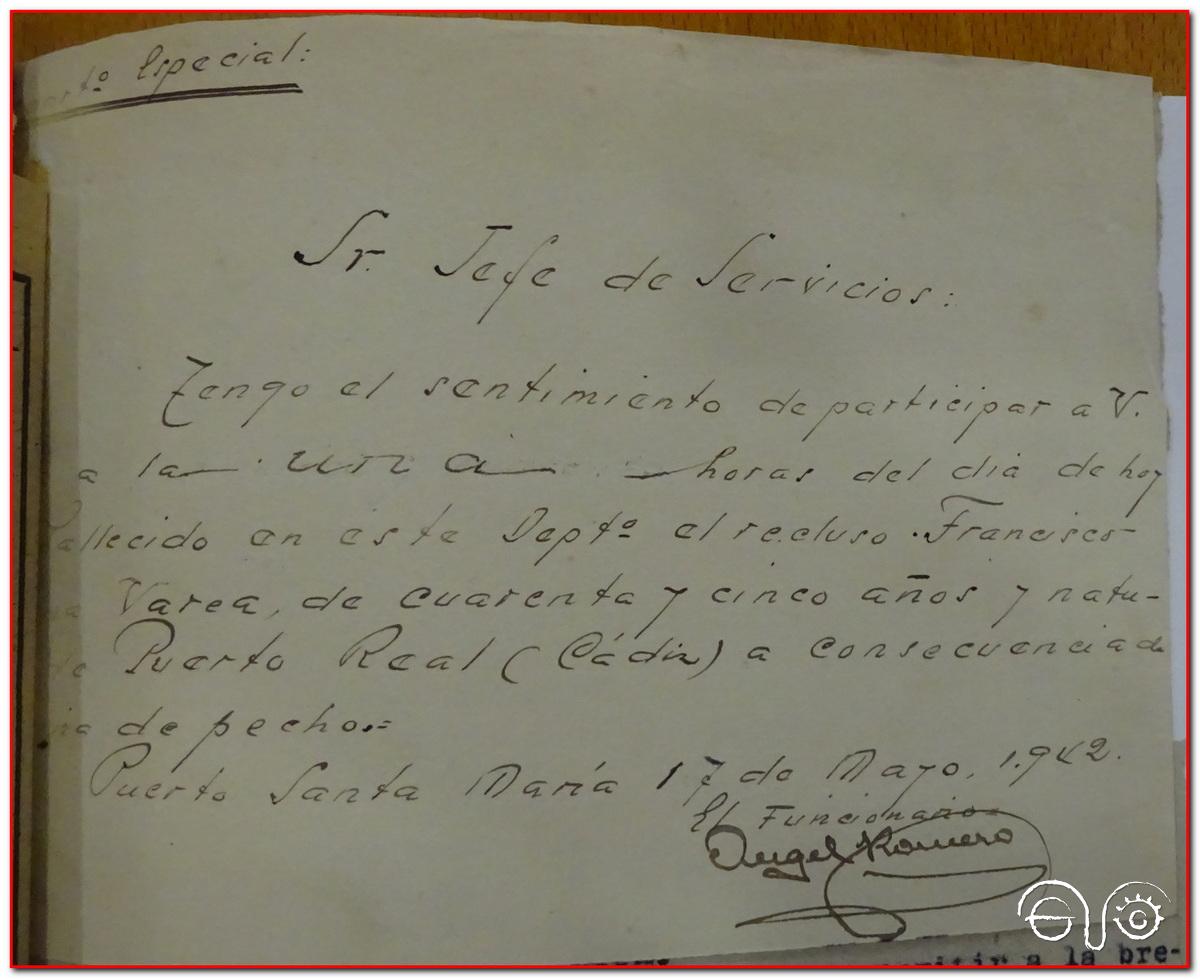 Especial:
Sr. Jefe de Servicios:
Tengo el sentimiento de participar a V.
a la una horas del dia de hoy
allecido en este Deptº el recluso Francisco
Varea, de cuarenta y cinco años y natu-
Puerto Real (Cádiz) a consecuencia de
de pecho.=
Puerto Santa María 17 de Mayo, 1.942.
El Funcionario
Angel Romero
a la bre-